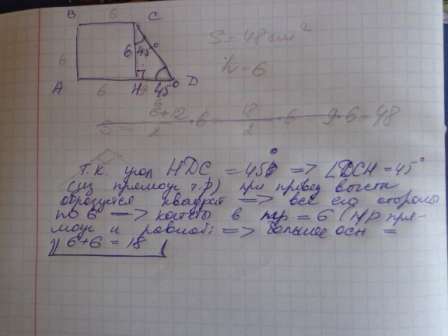 B 6 C
6 6 45°
A 6 H D
45°
S = 48 см²
h - 6
6+12
2 · 6 = 18
2 · 6 9·6 = 48
Т.К. угол HDC = 45° => ∠DCH = 45°
(из прямоуг тр) при провед высоты
образуется квадрат => все его стороны
по 6 => катеты в тр = 6 (
и => большее осн =
6+6 = 18